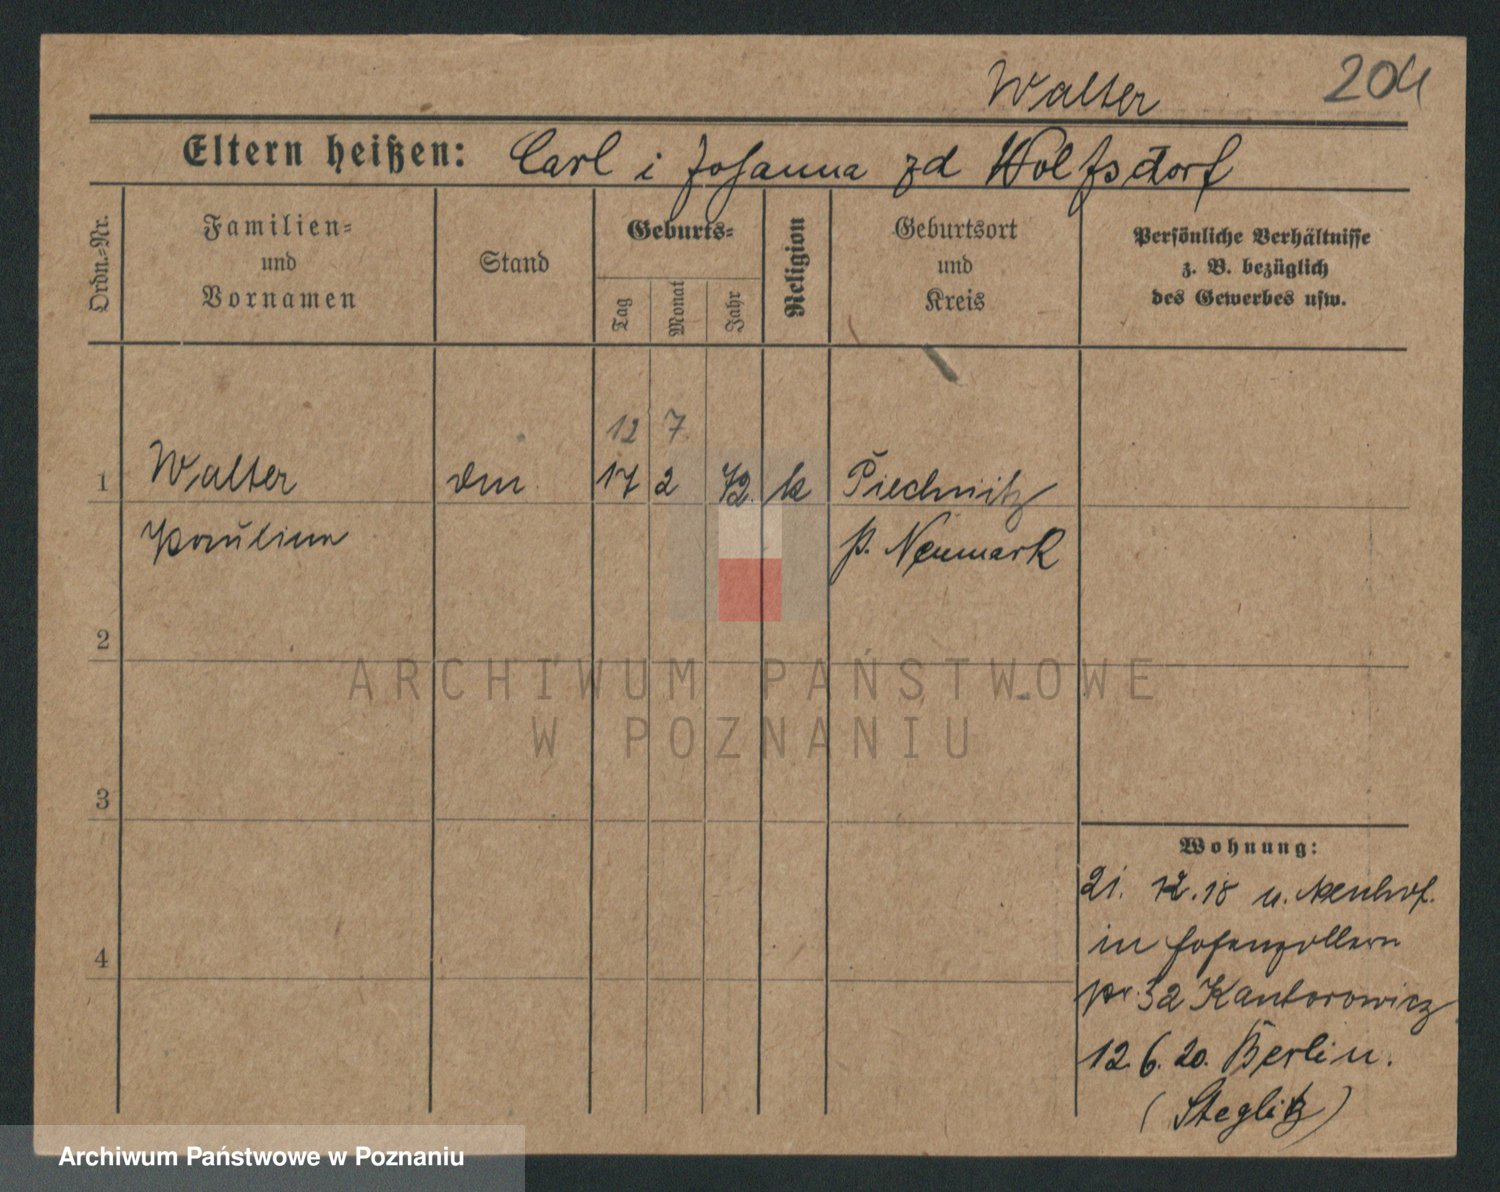 Walter 204
Eltern heißen: Carl i Johanna zd Wolfsdorf
Ordn.-Nr.
Familien-
und
Vornamen
Stand
Geburts-
Tag
Monat
Jahr
Religion
Geburtsort
und
Kreis
Persönliche Verhältnisse
z. B. bezüglich
des Gewerbes usw.
12 7
1 Walter 17 2 72 k Piechnitz
Paulina p. Neumark
2
3
4
Wohnung:
21. 12. 18
in Hohenzollern
32 Kantorowicz
12. 6. 20. Berlin.
(Steglitz)
ARCHIWUM PAŃSTWOWE
W POZNANIU
Archiwum Państwowe w Poznaniu